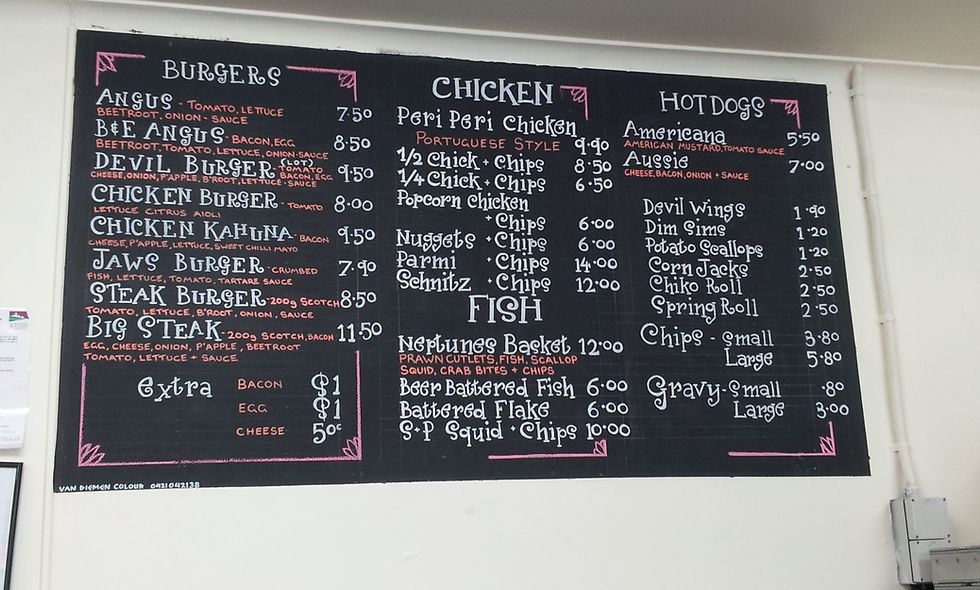 BURGERS
ANGUS - TOMATO, LETTUCE 7.50
BEETROOT, ONION - SAUCE
B&E ANGUS - BACON, EGG 8.50
BEETROOT, TOMATO, LETTUCE, ONION - SAUCE
DEVIL BURGER (LOT) TOMATO BACON, EGG 9.50
CHEESE, ONION, P'APPLE, B'ROOT, LETTUCE - SAUCE
CHICKEN BURGER - TOMATO 8.00
LETTUCE CITRUS AIOLI
CHICKEN KAHUNA - BACON 9.50
CHEESE, P'APPLE, LETTUCE, SWEET CHILLI MAYO
JAWS BURGER - CRUMBED 7.90
FISH, LETTUCE, TOMATO, TARTARE SAUCE
STEAK BURGER - 200g SCOTCH 8.50
TOMATO, LETTUCE, B'ROOT, ONION, SAUCE
BIG STEAK - 200g SCOTCH, BACON 11.50
EGG, CHEESE, ONION, P'APPLE, BEETROOT
TOMATO, LETTUCE + SAUCE
Extra BACON $1
EGG $1
CHEESE 50c
VAN DIEMEN COLOUR 0421042138
CHICKEN
Peri Peri Chicken
PORTUGUESE STYLE 9.90
1/2 Chick + Chips 8.50
1/4 Chick + Chips 6.50
Popcorn Chicken
+ Chips 6.00
Nuggets + Chips 6.00
Parmi + Chips 14.00
Schnitz + Chips 12.00
FISH
Neptunes Basket 12.00
PRAWN CUTLETS, FISH, SCALLOP
SQUID, CRAB BITES + CHIPS
Beer Battered Fish 6.00
Battered Flake 6.00
S+P Squid + Chips 10.00
HOTDOGS
Americana 5.50
AMERICAN MUSTARD, TOMATO SAUCE
Aussie 7.00
CHEESE, BACON, ONION + SAUCE
Devil Wings 1.90
Dim Sims 1.20
Potato Scallops 1.20
Corn Jacks 2.50
Chiko Roll 2.50
Spring Roll 2.50
Chips - Small 3.80
Large 5.80
Gravy - Small .80
Large 3.00